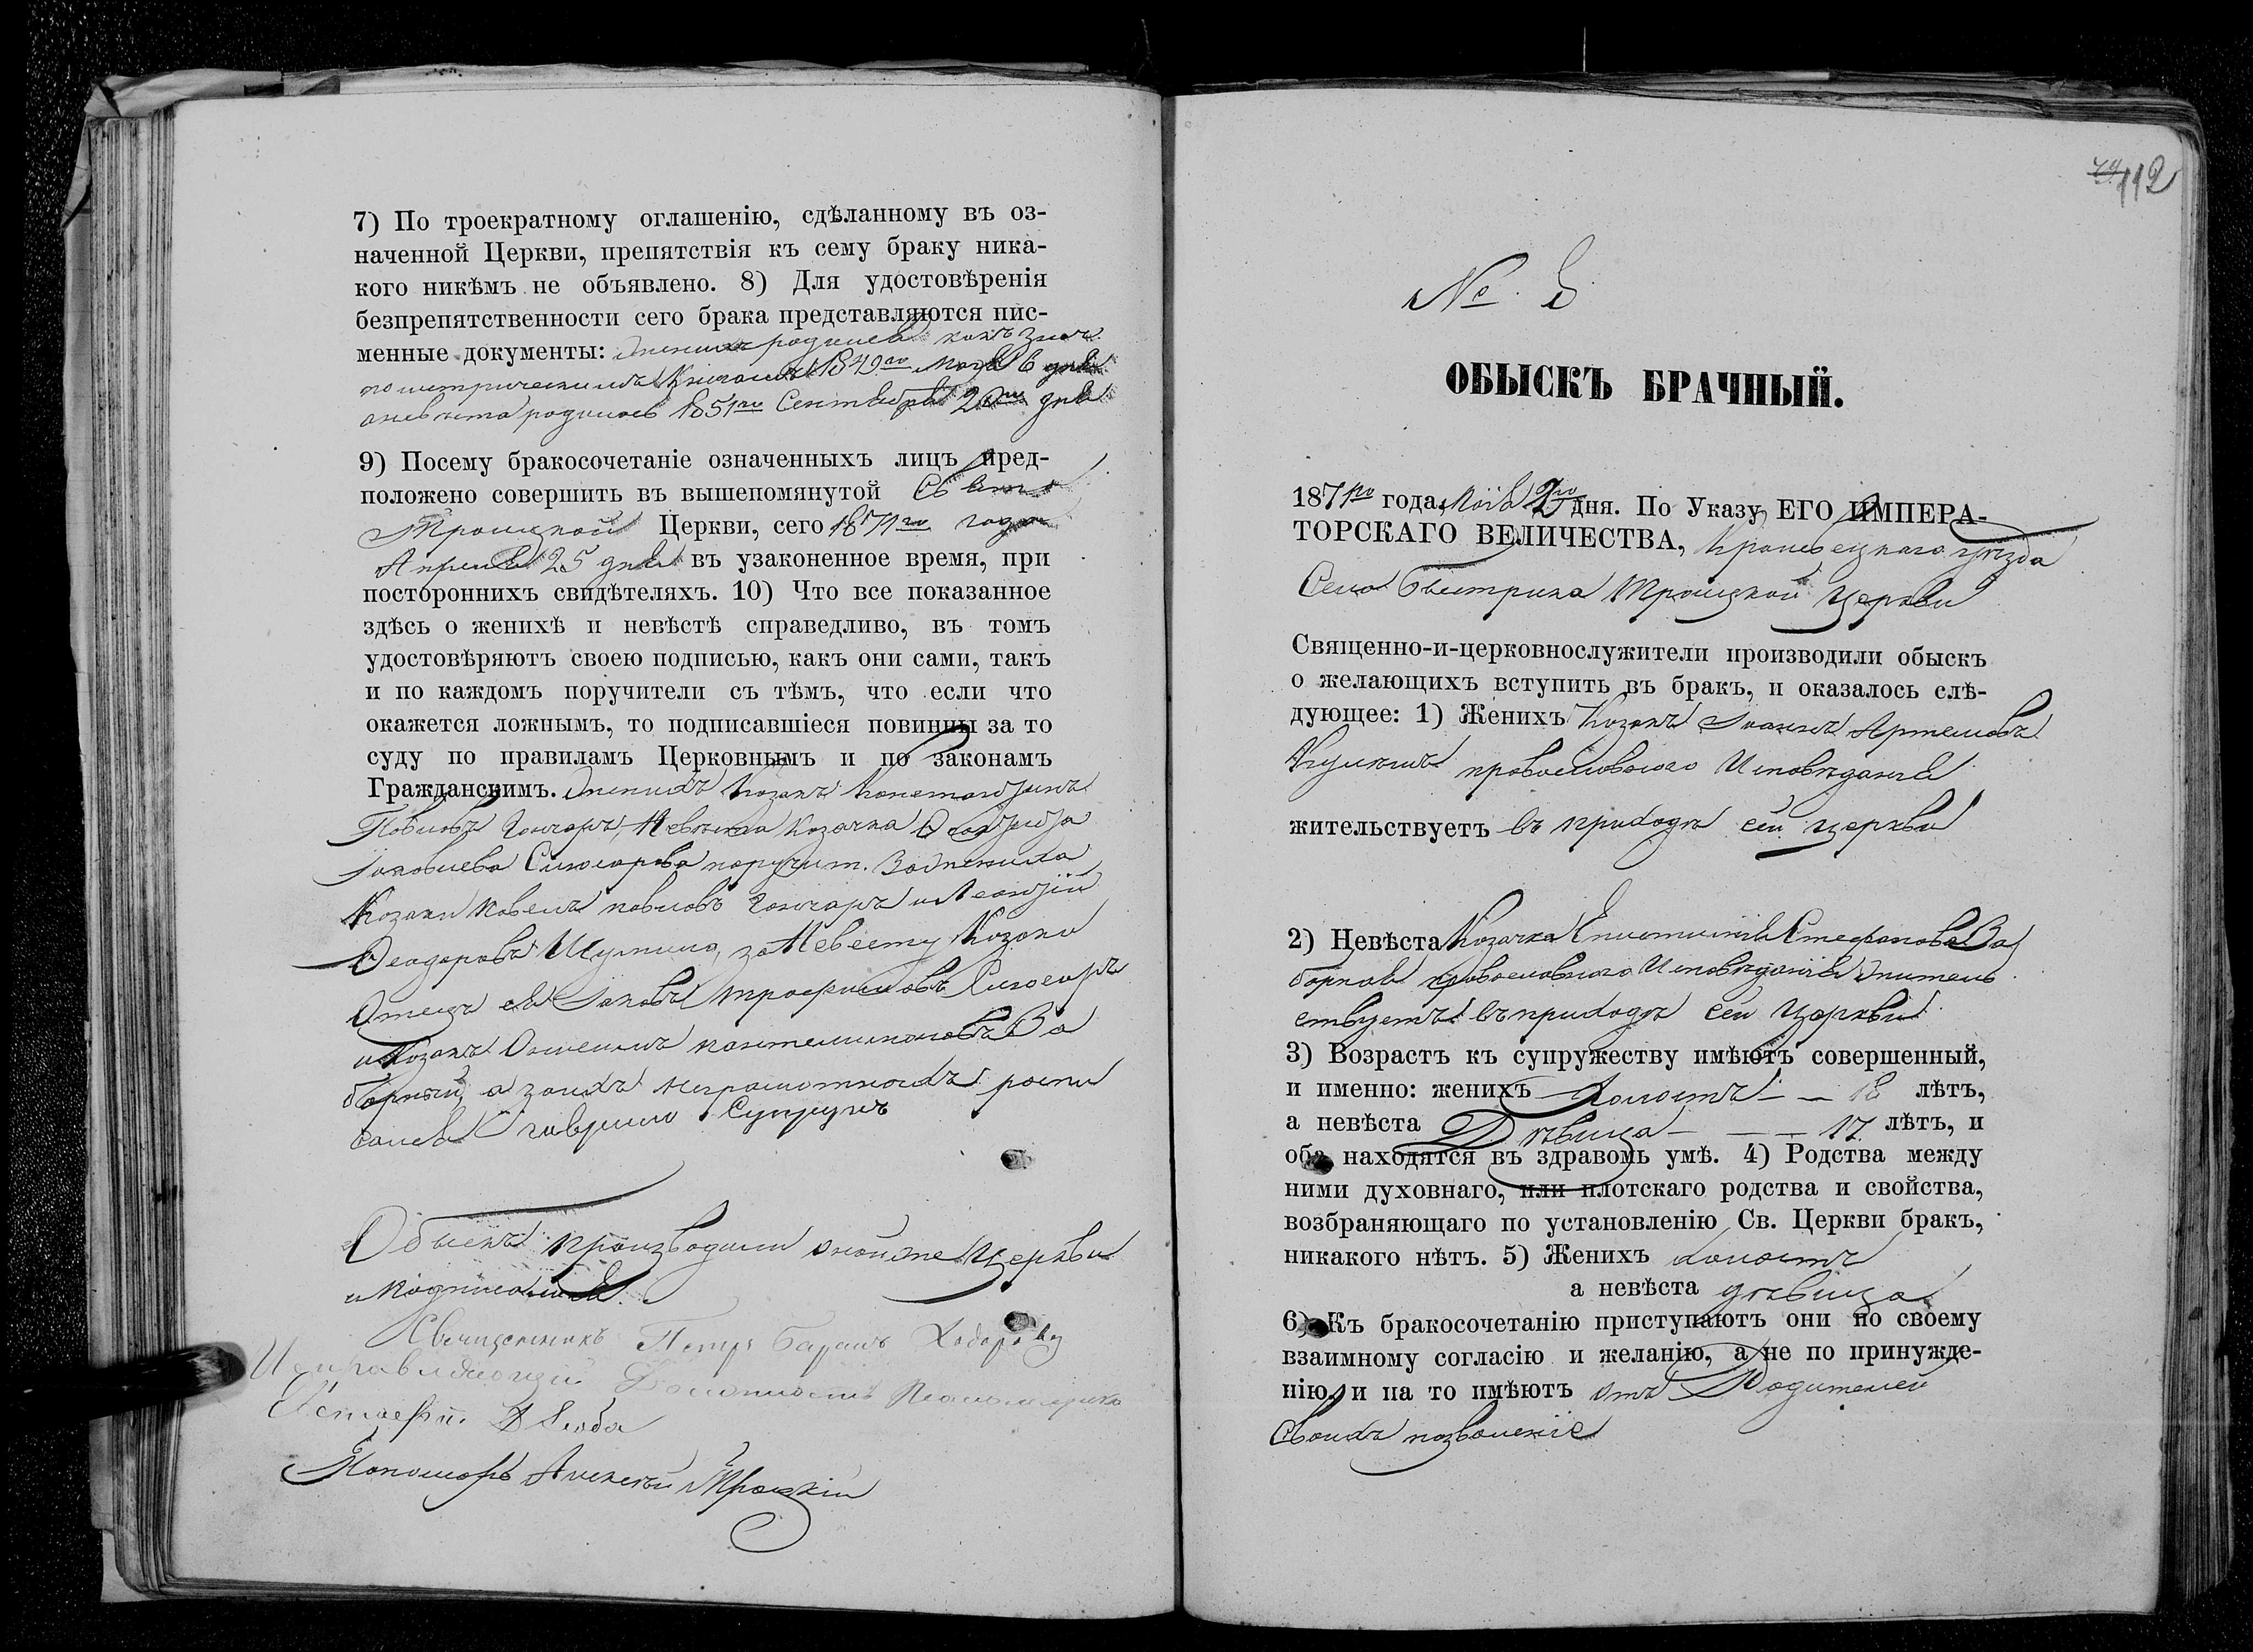 7) По троекратному оглашенію, сдѣланному въ оз-
наченной Церкви, препятствія къ сему браку ника-
кого никѣмъ не объявлено. 8) Для удостовѣренія
безпрепятственности сего брака представляются пис-
менные документы: женихъ родился какъ знач.
по метрическимъ Книгамъ 1849го Мая 6 дня
а невѣста родилась 1851го Сентября 20го дня
9) Посему бракосочетаніе означенныхъ лицъ пред-
положено совершить въ вышепомянутой Свято
Троицкой Церкви, сего 1871го года
Апреля 25 дня въ узаконенное время, при
постороннихъ свидѣтеляхъ. 10) Что все показанное
здѣсь о женихѣ и невѣстѣ справедливо, въ томъ
удостовѣряютъ своею подписью, какъ они сами, такъ
и по каждомъ поручители съ тѣмъ, что если что
окажется ложнымъ, то подписавшіеся повинны за то
суду по правиламъ Церковнымъ и по законамъ
Гражданскимъ. Женихъ Козакъ Константинъ
Павловъ Гончаръ, Невѣста Козачка
Іаковлева Слюсарева поручит. За жениха
Козаки Павелъ Павловъ Гончаръ и Леонтій
Феодоровъ Шумило, за Невесту Козаки
Отецъ ея Іаковъ Трофимовъ Слюсарь
и Козакъ Пантелимоновъ За
борный, а за нихъ неграмотныхъ роспи
сался Гаврило Супрунъ
Обыскъ производили оной же Церкви
и подписались
Священникъ Петръ Ходоровъ
Исправляющій Должность Псаломщика
Естафій Дзюба
Пономарь Алексѣй Троцкій
112
№. 8
ОБЫСКЪ БРАЧНЫЙ.
1871го года, Маія 2го дня. По Указу ЕГО ИМПЕРА-
ТОРСКАГО ВЕЛИЧЕСТВА, Кролевецкаго уѣзда
Села Быстрика Троицкой Церкви
Священно-и-церковнослужители производили обыскъ
о желающихъ вступить въ бракъ, и оказалось слѣ-
дующее: 1) Женихъ Козакъ Іоаннъ Артемовъ
православнаго Исповѣданія
жительствуетъ въ приходѣ сей церкви
2) Невѣста Козачка Епистимія Стефанова За
борная православнаго Исповѣданія житель
ствуетъ въ приходѣ сей Церкви
3) Возрастъ къ супружеству имѣютъ совершенный,
и именно: женихъ Холостъ — — 18 лѣтъ,
а невѣста Дѣвица — — — 17 лѣтъ, и
оба находятся въ здравомь умѣ. 4) Родства между
ними духовнаго, или плотскаго родства и свойства,
возбраняющаго по установленію Св. Церкви бракъ,
никакого нѣтъ. 5) Женихъ холостъ
а невѣста дѣвица
6) Къ бракосочетанію приступаютъ они по своему
взаимному согласію и желанію, а не по принужде-
нію, и на то имѣютъ отъ Родителей
Своихъ позволеніе